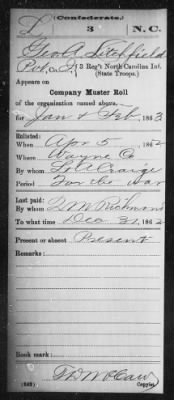 (Confederate.)
L 3 N.C.
Geo A Litchfield
Pvt, Co. G, 3 Reg't North Carolina Inf.
(State Troops.)
Appears on
Company Muster Roll
of the organization named above,
for Jan & Feb, 1863
Enlisted:
When Apr 5, 1862
Where Wayne Co
By whom Craige
Period For the war
Last paid:
By whom Richmond
To what time Dec 31, 1862
Present or absent Present
Remarks:
Book mark:
(642) Copyist.